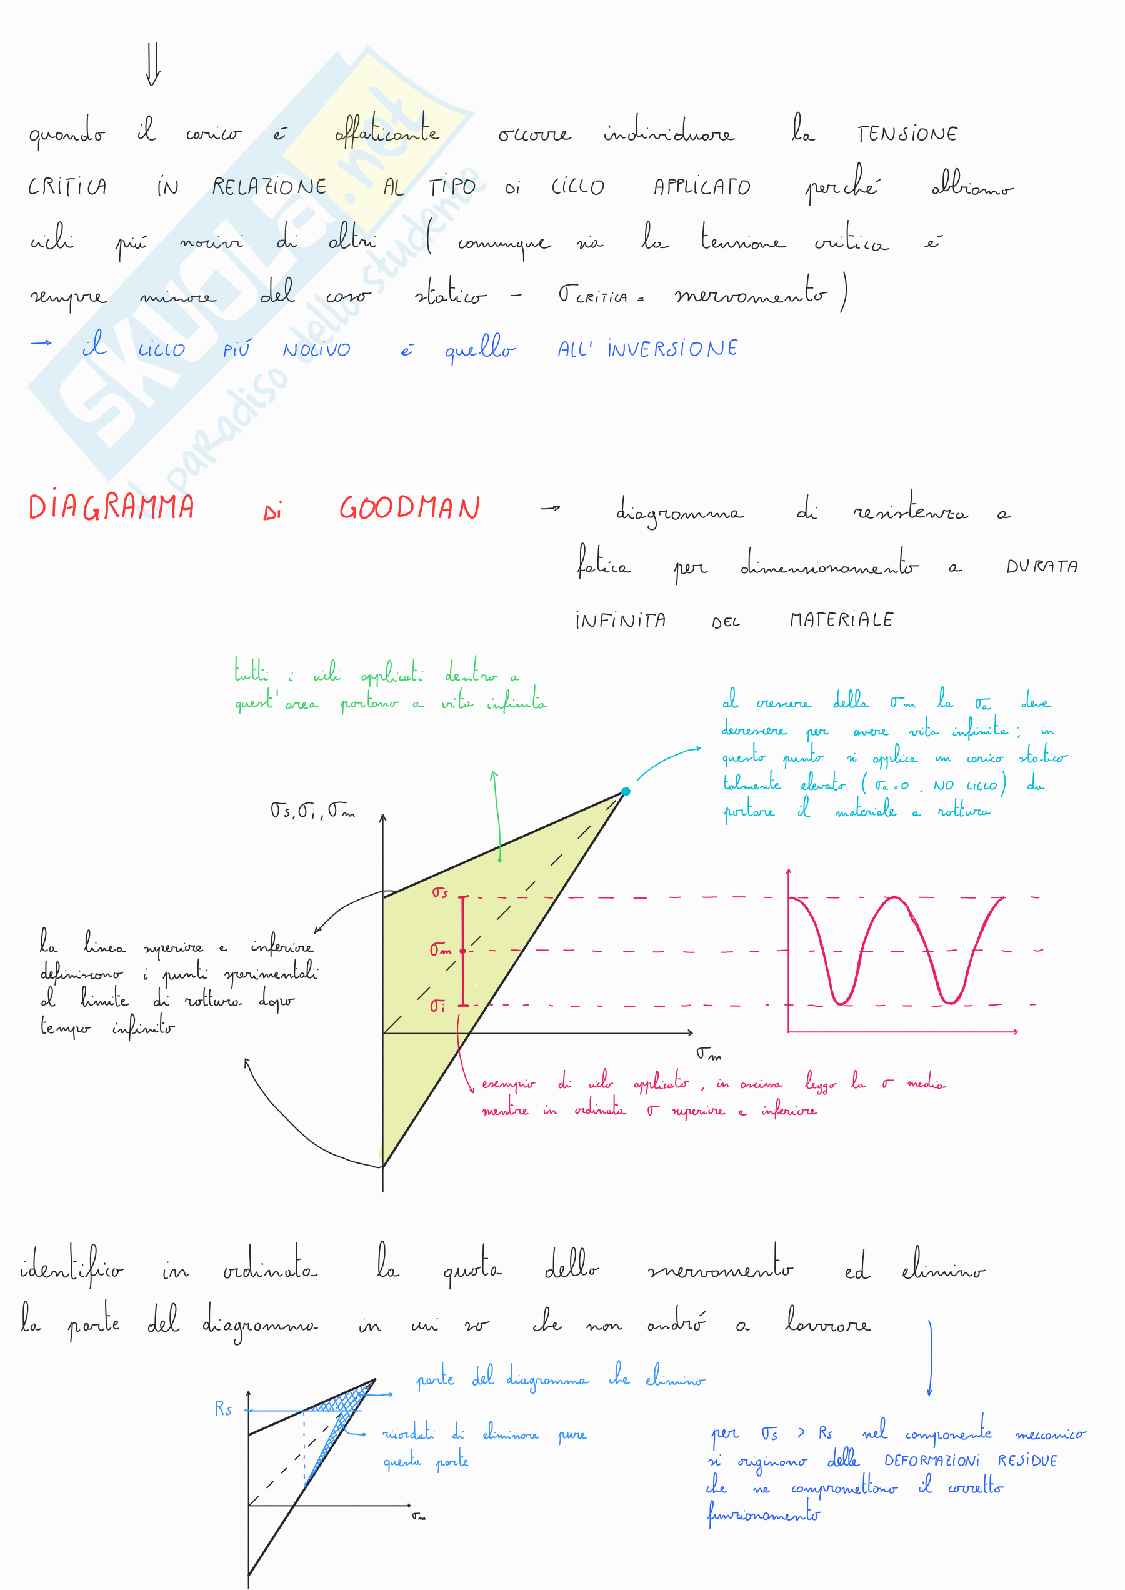 ⇓
quando il carico é affaticante occorre individuare la TENSIONE
CRITICA IN RELAZIONE AL TIPO DI CICLO APPLICATO perché abbiamo
cicli piú nocivi di altri ( comunque sia la tensione critica é
sempre minore del caso statico - σCRITICA = snervamento )
→ il CICLO PIÚ NOCIVO é quello ALL' INVERSIONE
SKUOLA.net
il paradiso dello studente
DIAGRAMMA DI GOODMAN → diagramma di resistenza a
fatica per dimensionamento a DURATA
INFINITA DEL MATERIALE
tutti i cicli applicati dentro a
quest' area portano a vita infinita
al crescere della σm la σa deve
decrescere per avere vita infinita ; in
questo punto si applica un carico statico
talmente elevato ( σa=0 , NO CICLO ) da
portare il materiale a rottura
σs, σi, σm
σs
σm
σi
la linea superiore e inferiore
definiscono i punti sperimentali
al limite di rottura dopo
tempo infinito
σm
esempio di ciclo applicato , in ascissa leggo la σ media
mentre in ordinata σ superiore e inferiore
identifico in ordinata la quota dello snervamento ed elimino
la parte del diagramma in cui so che non andró a lavorare
parte del diagramma che elimino
Rs
ricordati di eliminare pure
questa parte
σm
per σs > Rs nel componente meccanico
si originano delle DEFORMAZIONI RESIDUE
che ne compromettono il corretto
funzionamento